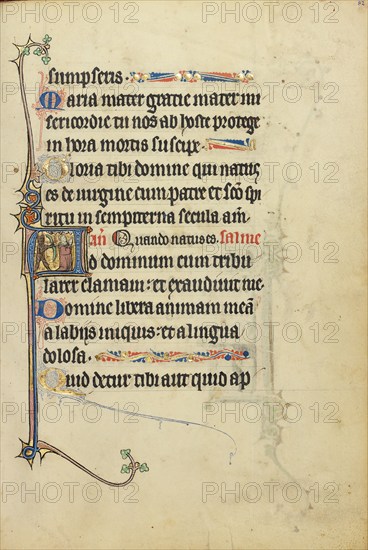 sumpseris.
Maria mater gratie mater mi
sericordie tu nos ab hoste protege
in hora mortis suscipe.
Gloria tibi domine qui natus
es de uirgine cum patre et sc̃o spi
ritu in sempiterna secula am̃.
añ Quando natus es. salme
Ad dominum cum tribu
larer clamaui: et exaudiuit me.
Domine libera animam meã
a labijs iniquis: et a lingua
dolosa.
Quid detur tibi aut quid ap
PHOTO 12